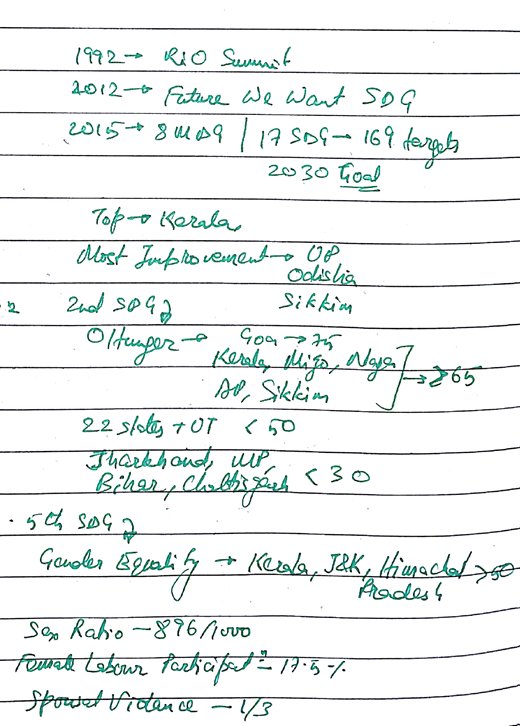 1992 → RIO Summit
2012 → Future We Want SDG
2015 → 8 MDG | 17 SDG → 169 targets
2030 Goal
Top → Kerala
Most Improvement → UP
Odisha
2nd SDG Sikkim
0 Hunger → Goa → 75
Kerala, Mizo, Naga
AP, Sikkim → ≥65
22 states + UT < 50
Jharkhand, MP,
Bihar, Chattisgarh < 30
5th SDG
Gender Equality → Kerala, J&K, Himachal >50
Pradesh
Sex Ratio - 896/1000
Female Labour Participatn = 17.5 %
Spousal Violence - 1/3